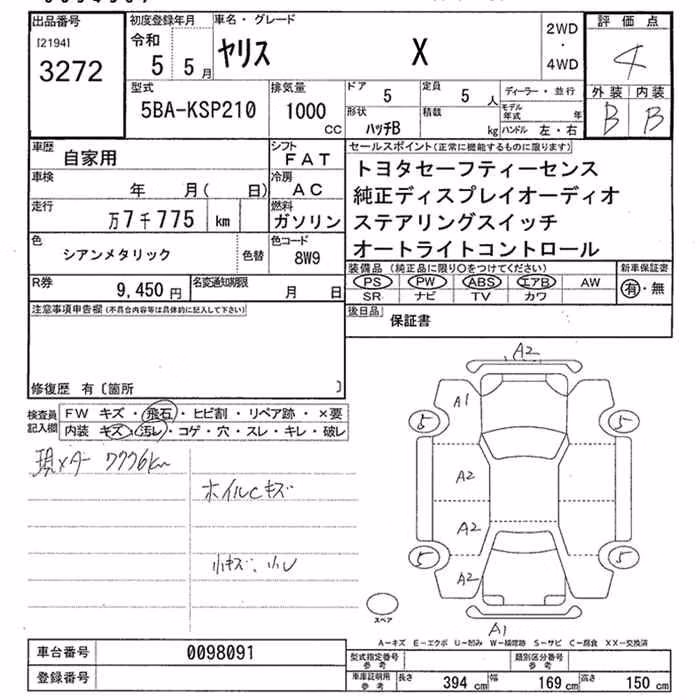 出品番号
[2194]
3272
初度登録年月
令和
5 5月
車名・グレード
ヤリス X
2WD
・
4WD
評価点
4
外装 内装
B B
型式
5BA-KSP210
排気量
1000
CC
ドア
5
定員
5 人
形状
ハッチB
積載
kg
ディーラー・並行
モデル年式 年
ハンドル 左・右
車歴 自家用
シフト
FAT
車検 年 月( 日)
冷房
AC
走行
万7千775 km
燃料
ガソリン
色
シアンメタリック
色替
色コード
8W9
セールスポイント(正常に機能するものに限ります)
トヨタセーフティーセンス
純正ディスプレイオーディオ
ステアリングスイッチ
オートライトコントロール
R券
9,450 円
名変通知期限
月 日
装備品(純正品に限り○をつけてください)
PS PW ABS エアB AW
SR ナビ TV カワ
新車保証書
有・無
注意事項申告欄(不具合内容等は具体的に記入して下さい)
修復歴 有〔箇所 〕
後日品
保証書
検査員
記入欄
FW キズ・飛石・ヒビ割・リペア跡・×要
内装 キズ・汚レ・コゲ・穴・スレ・キレ・破レ
現メーター 7776km
ホイルCキズ
小キズ、小U
A2
A1
5 5
A2
A2
5 5
A2
スペア
A1
A-キズ E-エクボ U-凹み W-補修跡 S-サビ C-腐食 XX-交換済
車台番号 0098091
登録番号
型式指定番号
参考
類別区分番号
参考
車庫証明用
参考
長さ 394 cm 幅 169 cm 高さ 150 cm